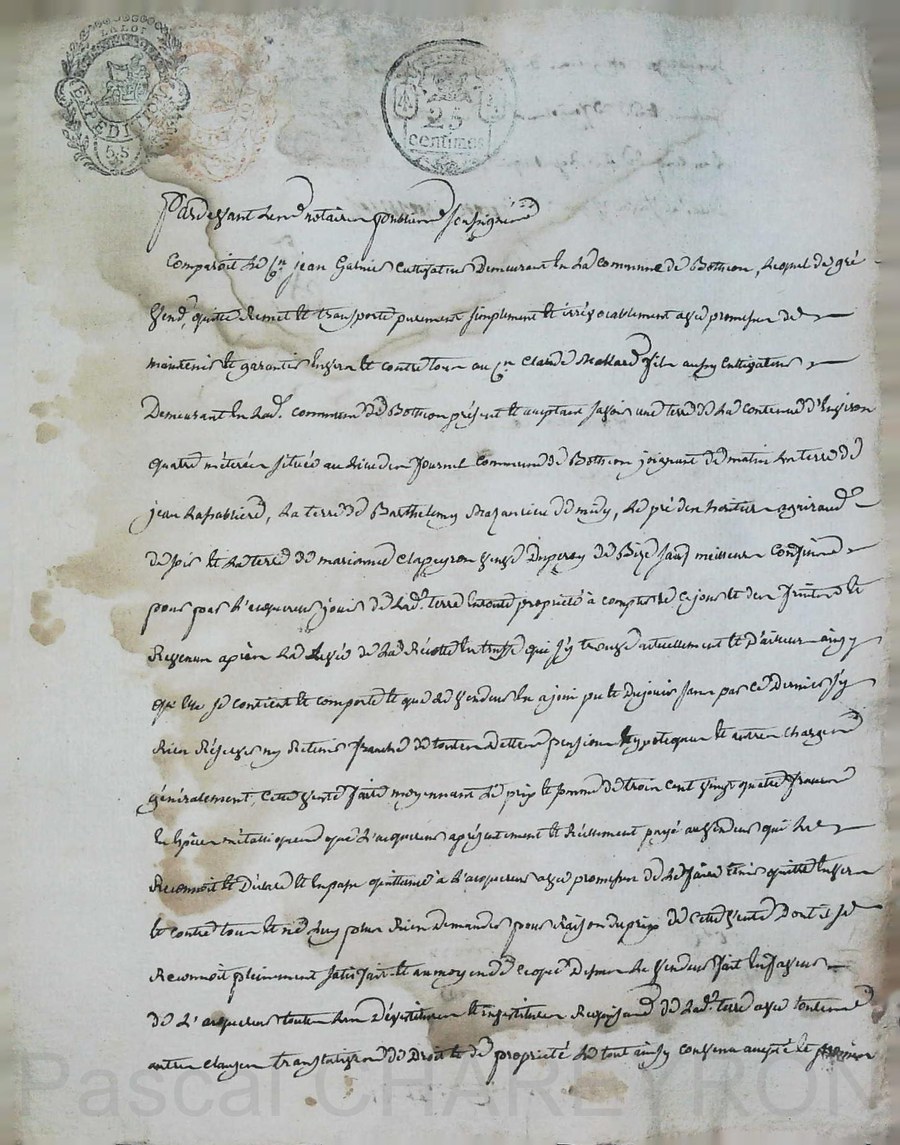 LA LOI
EXPEDITION
55
25
centimes
Pardevant Les nres notaires publics soussignés
Comparoit Le Cen jean Garnier Cultivateur Demeurant En La commune de Bothéon, Lequel de gré
Vend, quitte Remet et transporte purement simplement et irrévocablement avec promesse de
maintenir et garantir Envers et contre tous au Cen Claude fils aussy Cultivateur
Demeurant En Lad. commune de Bothéon présent et acceptant savoir une terre de La contenue d'Environ
quatre méterées située au Lieu des Journel Commune de Bothéon joignant de matin La terre de
jean Lasablière, La terre de Barthelemy de midy, Le pré des héritiers
de soir et La terre de marianne Clapeyron veuve de Bize sauf meilleurs Confins
pour par L'acquereur jouir de Lad. terre En toute propriété à compter de ce jour et des fruits et
Revenus après La Levée de La Récolte En qui s'y trouve actuellement et d'ailleurs ainsy
qu'elle se contient et comporte et que Le vendeur En a joui pu et du jouir sans par ce Dernier s'y
Rien Réserver ny Retenir franche de toutes dettes pensions hypotèques et autres charges
généralement, Cette vente faite moyennant Le prix et somme de trois cent vingt quatre francs
En Espèces métalliques que L'acquereur a présentement et Réellement payé au vendeur qui Le
Reconnoit et Déclare et En passe quittance à L'acquereur avec promesse de Le faire tenir quitte Envers
et contre tous et ne Luy plus Rien demander pour Raison du prix de cette vente Dont il se
Reconnoit pleinement satisfait et au moyen de ce que Dessus Le vendeur fait En faveur
de L'acquereur toutes Les Dévestitures et investitures Requises de Lad. terre avec toutes
autres clauses translatives de Droit et de propriété Le tout ainsy convenu accepté et
Pascal CHAREYRON